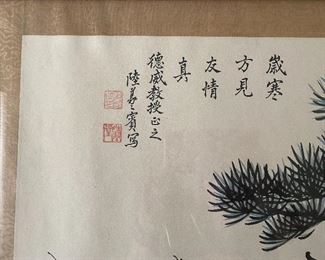 歲寒
方見
友情
真
德威教授正之
陸羲賓寫